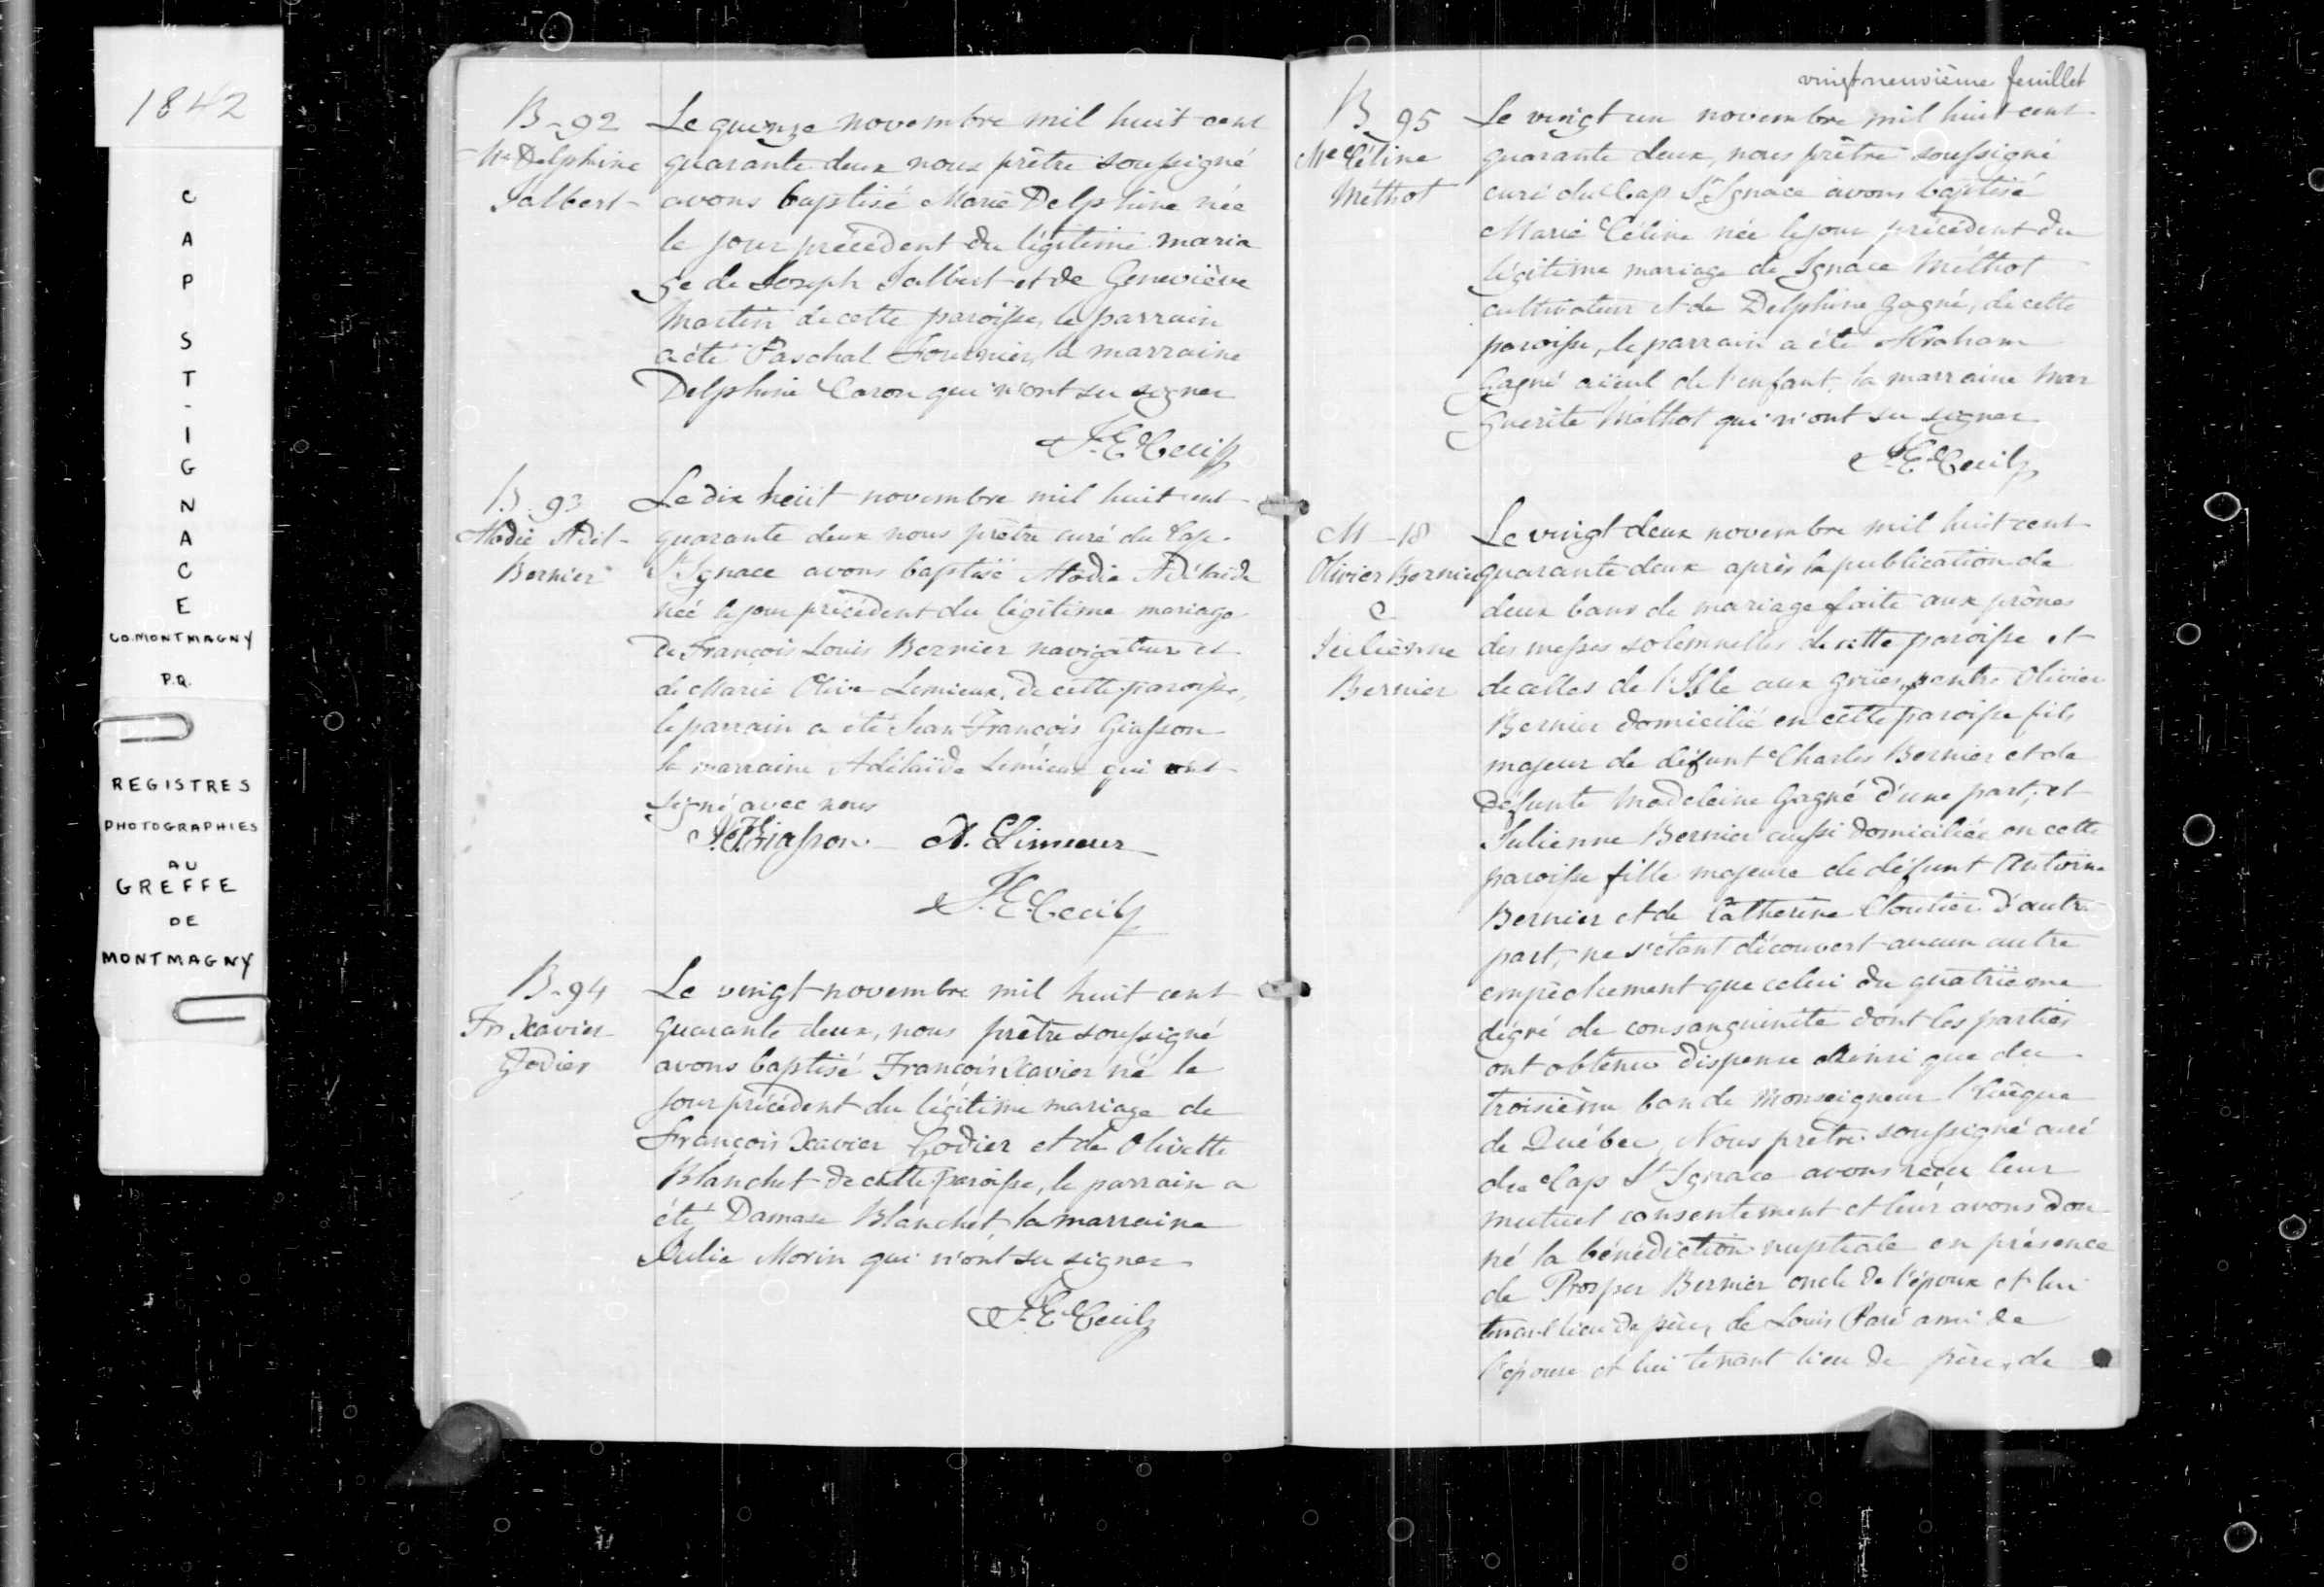 1842
CAP ST-IGNACE
CO. MONTMAGNY
P.Q.
REGISTRES
PHOTOGRAPHIES
AU
GREFFE
DE
MONTMAGNY
B-92
Me Delphine
Jalbert
Le quinze novembre mil huit cent
quarante deux nous prêtre soussigné
avons baptisé Marie Delphine née
le jour précédent du légitime maria
ge de Joseph Jalbert et de Geneviève
Martin de cette paroisse, le parrain
a été Paschal Fournier, la marraine
Delphine Caron qui n'ont su signer
B-93
Adél-
Bernier
Le dix huit novembre mil huit cent
quarante deux nous prêtre curé du Cap
St Ignace avons baptisé Adélaïde
née le jour précédent du légitime mariage
de François Louis Bernier navigateur et
de Marie Olive Lemieux, de cette paroisse,
le parrain a été Jean François Giasson
la marraine Adélaïde Lemieux qui ont
signé avec nous
J. F. Giasson A. Lemieux
B-94
Fr Xavier
Godier
Le vingt novembre mil huit cent
quarante deux, nous prêtre soussigné
avons baptisé François Xavier né le
jour précédent du légitime mariage de
François Xavier Godier et de Olivette
Blanchet de cette paroisse, le parrain a
été Damase Blanchet, la marraine
Julie Morin qui n'ont su signer
vingt neuvième feuillet
B 95
Me Céline
Méthot
Le vingt un novembre mil huit cent
quarante deux, nous prêtre soussigné
curé du Cap St Ignace avons baptisé
Marie Céline née le jour précédent du
légitime mariage de Ignace Méthot
cultivateur et de Delphine Gagné, de cette
paroisse, le parrain a été Abraham
Gagné aïeul de l'enfant, la marraine Mar
guerite Méthot qui n'ont su signer
M-18
Olivier Bernier
&
Julienne
Bernier
Le vingt deux novembre mil huit cent
quarante deux après la publication de
deux bans de mariage faite aux prônes
des messes solemnelles de cette paroisse et
de celles de l'Isle aux Grües, entre Olivier
Bernier domicilié en cette paroisse fils
majeur de défunt Charles Bernier et de
défunte Madeleine Gagné d'une part; et
Julienne Bernier aussi domiciliée en cette
paroisse fille majeure de défunt Antoine
Bernier et de Catherine Cloutier d'autre
part, ne s'étant découvert aucun autre
empêchement que celui du quatrième
dégré de consanguinité dont les parties
ont obtenu dispense ainsi que du
troisième ban de Monseigneur l'Evêque
de Québec, Nous prêtre soussigné curé
du Cap St Ignace avons reçu leur
mutuel consentement et leur avons don
né la bénédiction nuptiale en présence
de Prosper Bernier oncle de l'époux et lui
tenant lieu de père, de Louis Paré ami de
l'épouse et lui tenant lieu de père, de